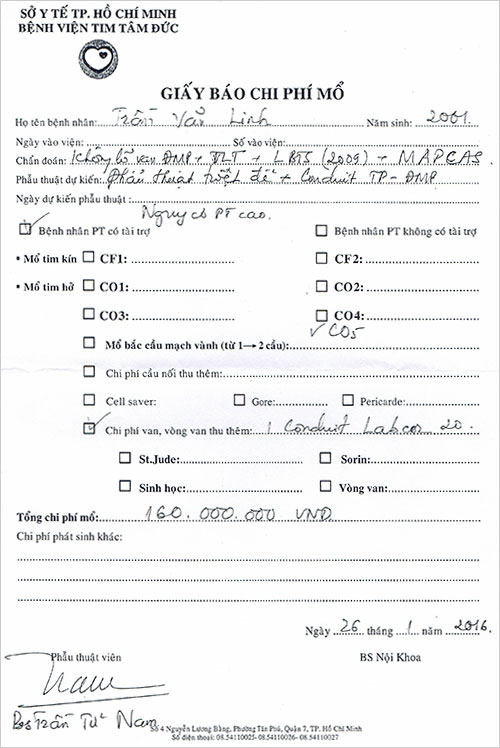 SỞ Y TẾ TP. HỒ CHÍ MINH
BỆNH VIỆN TIM TÂM ĐỨC
GIẤY BÁO CHI PHÍ MỔ
Họ tên bệnh nhân: Trần Văn Linh Năm sinh: 2001
Ngày vào viện: Số vào viện:
Chẩn đoán: Không lỗ van ĐMP + TLT + LBTS (2009) + MAPCAS
Phẫu thuật dự kiến: phẫu thuật triệt để + Conduit TP - ĐMP
Ngày dự kiến phẫu thuật:
Nguy cơ PT cao.
Bệnh nhân PT có tài trợ Bệnh nhân PT không có tài trợ
• Mổ tim kín CF1: CF2:
• Mổ tim hở CO1: CO2:
CO3: CO4:
✓ CO5
Mổ bắc cầu mạch vành (từ 1→2 cầu):
Chi phí cầu nối thu thêm:
Cell saver: Gore: Pericarde:
Chi phí van, vòng van thu thêm: 1 Conduit Labcor 20.
St.Jude: Sorin:
Sinh học: Vòng van:
Tổng chi phí mổ: 160.000.000 VND
Chi phí phát sinh khác:
Ngày 26 tháng 1 năm 2016.
Phẫu thuật viên BS Nội Khoa
Nam
Bs Trần Tử Nam
Số 4 Nguyễn Lương Bằng, Phường Tân Phú, Quận 7, TP. Hồ Chí Minh
Số điện thoại: 08.54110025- 08.54110026- 08.54110027